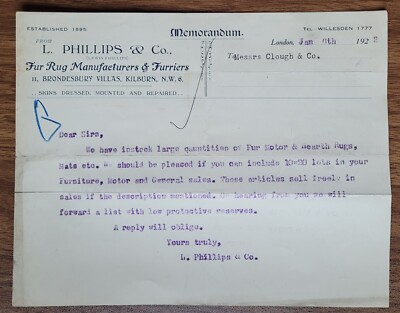 ESTABLISHED 1885.
Memorandum.
TEL. WILLESDEN 1777
FROM
L. PHILLIPS & Co.,
London, Jan 9th 192
To Messrs Clough & Co.
Fur Rug Manufacturers & Furriers
11, BRONDESBURY VILLAS, KILBURN, N.W.6.
SKINS DRESSED, MOUNTED AND REPAIRED
Dear Sirs,
We have instock large quantities of Fur Motor & Hearth Rugs,
Mats etc. We should be pleased if you can include 10-20 lots in your
Furniture, Motor and General sales. These articles sell freely in
sales if the description mentioned. On hearing from you we will
forward a list with low protective reserves.
A reply will oblige.
Yours truly,
L. Phillips & Co.